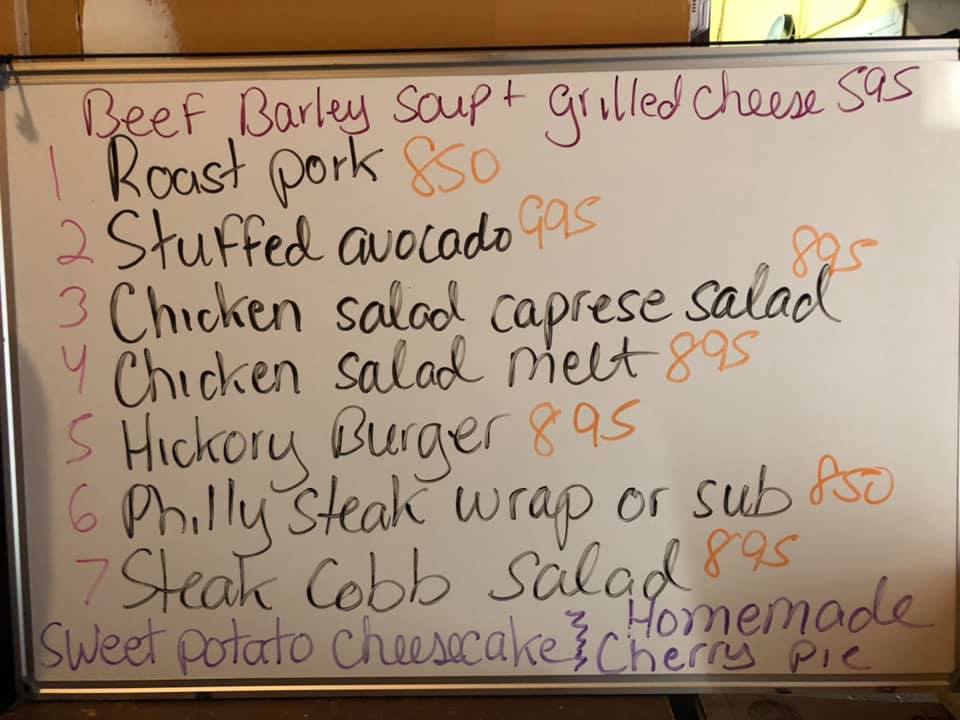 Beef Barley Soup + grilled cheese 595
1 Roast pork 850
2 Stuffed avocado 995
3 Chicken salad caprese salad 895
4 Chicken salad melt 895
5 Hickory Burger 895
6 Philly steak wrap or sub 850
7 Steak Cobb salad 895
Sweet potato cheesecake
Homemade
Cherry pie